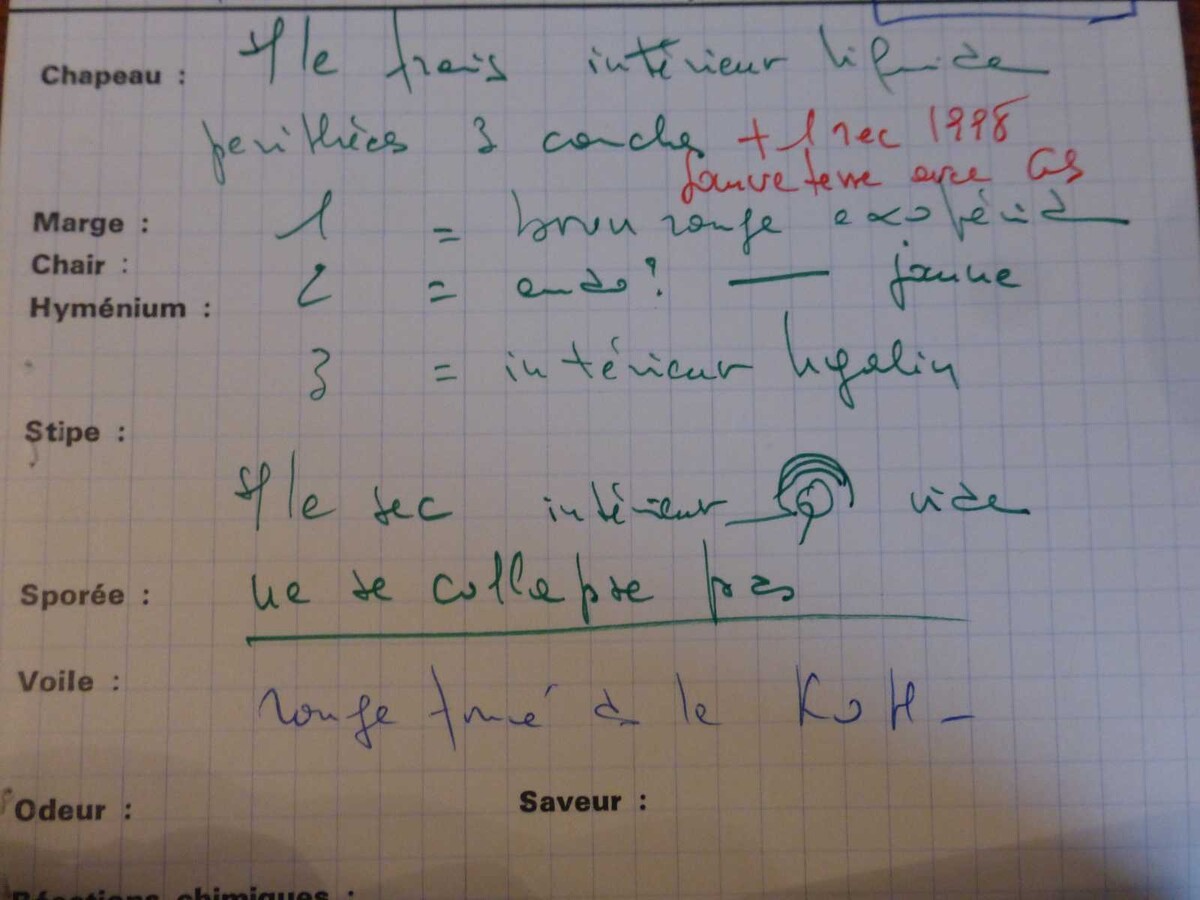 Chapeau : Sle frais intérieur liquide
périthèces 3 couches + 1 rec 1998
Sauveterre avec GS
Marge : 1 = brun rouge exopérid
Chair : 2 = endo? — jaune
Hyménium :
3 = intérieur hyalin
Stipe :
Sle sec intérieur vide
Sporée : ne se collapse pas
Voile : rouge foncé à le KOH –
Odeur : Saveur :
Réactions chimiques :